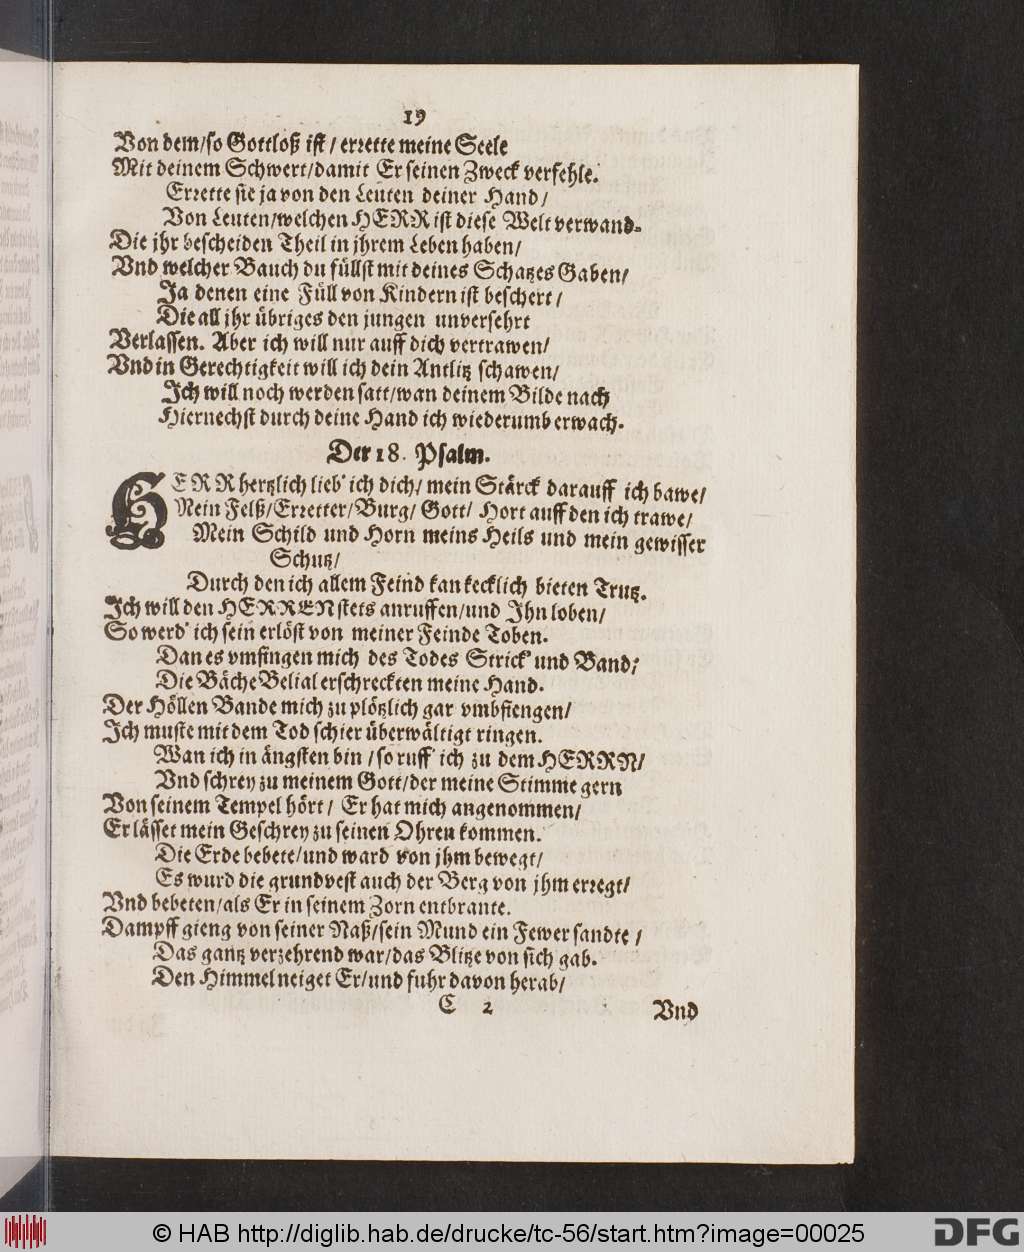 19
Von dem/so Gottloß ist / errette meine Seele
Mit deinem Schwert/damit Er seinen Zweck verfehle.
Errette sie ja von den Leuten deiner Hand/
Von Leuten/welchen HERR ist diese Welt verwand.
Die jhr bescheiden Theil in jhrem Leben haben/
Vnd welcher Bauch du füllst mit deines Schatzes Gaben/
Ja denen eine Füll von Kindern ist beschert/
Die all jhr übriges den jungen unversehrt
Verlassen. Aber ich will nur auff dich vertrawen/
Vnd in Gerechtigkeit will ich dein Antlitz schawen/
Ich will noch werden satt/wan deinem Bilde nach
Hiernechst durch deine Hand ich wiederumb erwach.
Der 18. Psalm.
HERR hertzlich lieb' ich dich/ mein Stärck darauff ich bawe/
Mein Felß/Erretter/Burg/ Gott/ Hort auff den ich trawe/
Mein Schild und Horn meins Heils und mein gewisser
Schutz/
Durch den ich allem Feind kan kecklich bieten Trutz.
Ich will den HERREN stets anruffen/und Ihn loben/
So werd' ich sein erlöst von meiner Feinde Toben.
Dan es vmfingen mich des Todes Strick' und Band;
Die Bäche Belial erschreckten meine Hand.
Der Höllen Bande mich zu plötzlich gar vmbfiengen/
Ich muste mit dem Tod schier überwältigt ringen.
Wan ich in ängsten bin / so ruff' ich zu dem HERRN/
Vnd schrey zu meinem Gott/der meine Stimme gern
Von seinem Tempel hört/ Er hat mich angenommen/
Er lässet mein Geschrey zu seinen Ohren kommen.
Die Erde bebete/und ward von jhm bewegt/
Es wurd die grundvest auch der Berg von jhm erregt/
Vnd bebeten/als Er in seinem Zorn entbrante.
Dampff gieng von seiner Naß/sein Mund ein Fewer sandte /
Das gantz verzehrend war/das Blitze von sich gab.
Den Himmel neiget Er/und fuhr davon herab/
C 2 Vnd
© HAB http://diglib.hab.de/drucke/tc-56/start.htm?image=00025
DFG